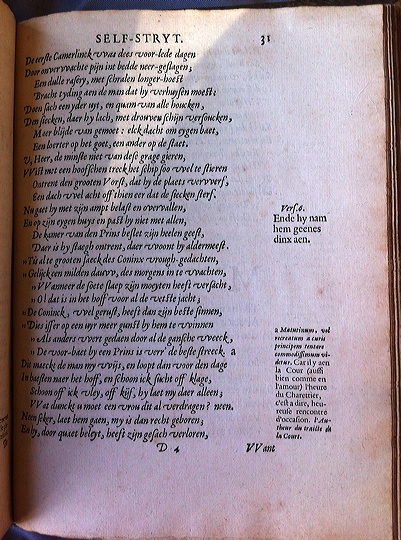 SELF-STRYT. 31
De eerste Camerlinck vvas dees voor-lede dagen
Door onvervvachte pijn int bedde neer-geslagen;
Een dulle rasery, met schralen longer-hoest
Bracht tyding aen de man dat hy verhuysen moest:
Doen sach een yder uyt, en quam van alle houcken,
Den siecken, daer hy lach, met drouven schijn versoucken,
Maer blijde van gemoet: elck dacht om eygen baet,
Een loerter op het goet, een ander op de staet.
V, Heer, de minste niet van dese grage gieren,
VVist met een hoofschen treck het schip soo vvel te stieren
Ontrent den grooten Vorst, dat hy de plaets vervverf,
Een dach vvel acht off thien eer dat de siecken sterf.
Nu gaet hy met zijn ampt belast en overvallen,
En op zijn eygen huys en past hy niet met allen,
De kamer van den Prins beslet zijn heelen geest,
Daer is hy staegh ontrent, daer vvoont hy aldermeest.
„ Tis al te grooten saeck des Coninx vrough-gedachten,
„ Gelijck een milden dauvv, des morgens in te vvachten,
„ VVanneer de soete slaep zijn moyten heeft versacht,
„ Ol dat is in het hoff voor al de vetste jacht;
„ De Coninck, vvel gerust, heeft dan zijn beste sinnen,
„ Dies isser op een uyr meer gunst by hem te vvinnen
„ Als anders vvert gedaen door al de gansche vveeck,
„ De voor-baet by een Prins is verr' de beste streeck. a
Dit maeckt de man my vvijs, en loopt dan voor den dage
In haesten naer het hoff, en schoon ick sucht off klage,
Schoon off ick vley, off kijf, hy laet my daer alleen;
VVat dunckt u moet een vrou dit al verdragen? neen.
Neen seker, laet hem gaen, my is dan recht geboren;
En hy, door quaet beleyt, heeft zijn gesach verloren,
D 4 VVant
Vers. 6.
Ende hy nam
hem geenes
dinx aen.
a Matutinum, vel
recreatum a curis
principem tentare
commodissimum vi-
detur. Car il y a en
la Cour (aussi
bien comme en
l'amour) l'heure
du Charettier,
c'est a dire, heu-
reuse rencontre
d'occasion. l'Au-
theur du traitte de
la Court.